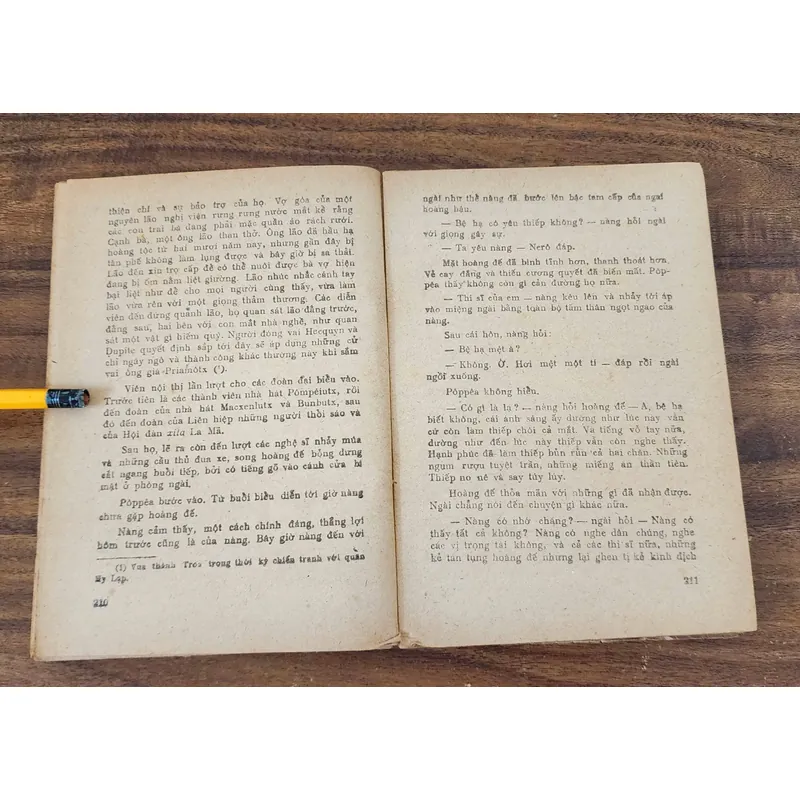 thiện chí và sự bảo trợ của họ. Vợ góa của một
nguyên lão nghị viện rưng rưng nước mắt kể rằng
các con trai bà đang phải mặc quần áo rách rưới.
Cạnh bà, một ông lão than thở. Ông lão đã hầu hạ
hoàng tộc từ hai mươi năm nay, nhưng gần đây bị
tàn phế không làm lụng được và bây giờ bị sa thải.
Lão đến xin trợ cấp để có thể nuôi được bà vợ hiện
đang bị ốm nằm liệt giường. Lão nhúc nhắc cánh tay
bại liệt như để cho mọi người cùng thấy, vừa làm
lão vừa rên với một giọng thảm thương. Các diễn
viên đến đứng quanh lão, họ quan sát lão đằng trước,
đằng sau, hai bên với con mắt nhà nghề, như quan
sát một vật gì hiếm quý. Người đóng vai Hecquyn và
Duplic quyết định sắp tới đây sẽ áp dụng những cử
chỉ ngây ngô và thành công khác thường này khi sắm
vai ông già Priamôtx (¹).
Viên nội thị lần lượt cho các đoàn đại biểu vào.
Trước tiên là các thành viên nhà hát Pômpêiutx, rồi
đến đoàn của nhà hát Macxenlutx và Bunbutx, sau
đó đến đoàn của Liên hiệp những người thổi sáo và
của Hội đàn xita La Mã.
Sau họ, lẽ ra còn đến lượt các nghệ sĩ nhảy múa
và những cầu thủ đua xe, song hoàng đế bỗng dưng
cắt ngang buổi tiếp, bởi có tiếng gõ vào cánh cửa bí
mật ở phòng ngài.
Pôppêa bước vào. Từ buổi biểu diễn tới giờ nàng
chưa gặp hoàng đế.
Nàng cảm thấy, một cách chính đáng, thắng lợi
hôm trước cũng là của nàng. Bây giờ nàng đến với
(1) Vua thành Troa trong thời kỳ chiến tranh với quân
Hy Lạp.
210
ngài như thể nàng đã bước lên bậc tam cấp của ngai
hoàng hậu.
— Bệ hạ có yêu thiếp không? — nàng hỏi ngài
với giọng gây sự.
— Ta yêu nàng — Nerô đáp.
Mặt hoàng đế đã bình tĩnh hơn, thanh thoát hơn.
Vẻ cay đắng và thiếu cương quyết đã biến mất. Pôp-
pêa thấy không còn gì cản đường họ nữa.
— Thi sĩ của em — nàng kêu lên và nhảy tới áp
vào miệng ngài bằng toàn bộ tấm thân ngọt ngào của
nàng.
Sau cái hôn, nàng hỏi:
— Bệ hạ mệt à?
— Không. Ờ. Hơi mệt một tí — đáp rồi ngài
ngồi xuống.
Pôppêa không hiểu.
— Có gì là lạ? — nàng hỏi hoàng đế — A, bệ hạ
biết không, cái ánh sáng ấy dường như lúc này vẫn
cứ còn làm thiếp chói cả mắt. Và tiếng vỗ tay nữa,
dường như đến lúc này thiếp vẫn còn nghe thấy.
Hạnh phúc đã làm thiếp bủn rủn cả hai chân. Những
ngụm rượu tuyệt trần, những miếng ăn thần tiên.
Thiếp no nê và say túy lúy.
Hoàng đế thỏa mãn với những gì đã nhận được.
Ngài chẳng nói đến chuyện gì khác nữa.
— Nàng có nhớ chăng? — ngài hỏi — Nàng có
thấy tất cả không? Nàng có nghe dân chúng, nghe
các vị trọng tài không, và cả các thi sĩ nữa, những
kẻ tán tụng hoàng đế nhưng lại ghen tị kẻ kình địch
211